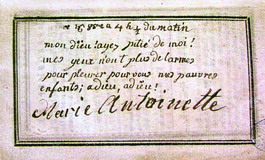 a 4 h ½ du matin
mon dieu! ayez pitié de moi!
mes yeux n'ont plus de larmes
pour pleurer pour vous mes pauvres
enfants; adieu, adieu!.
Marie Antoinette